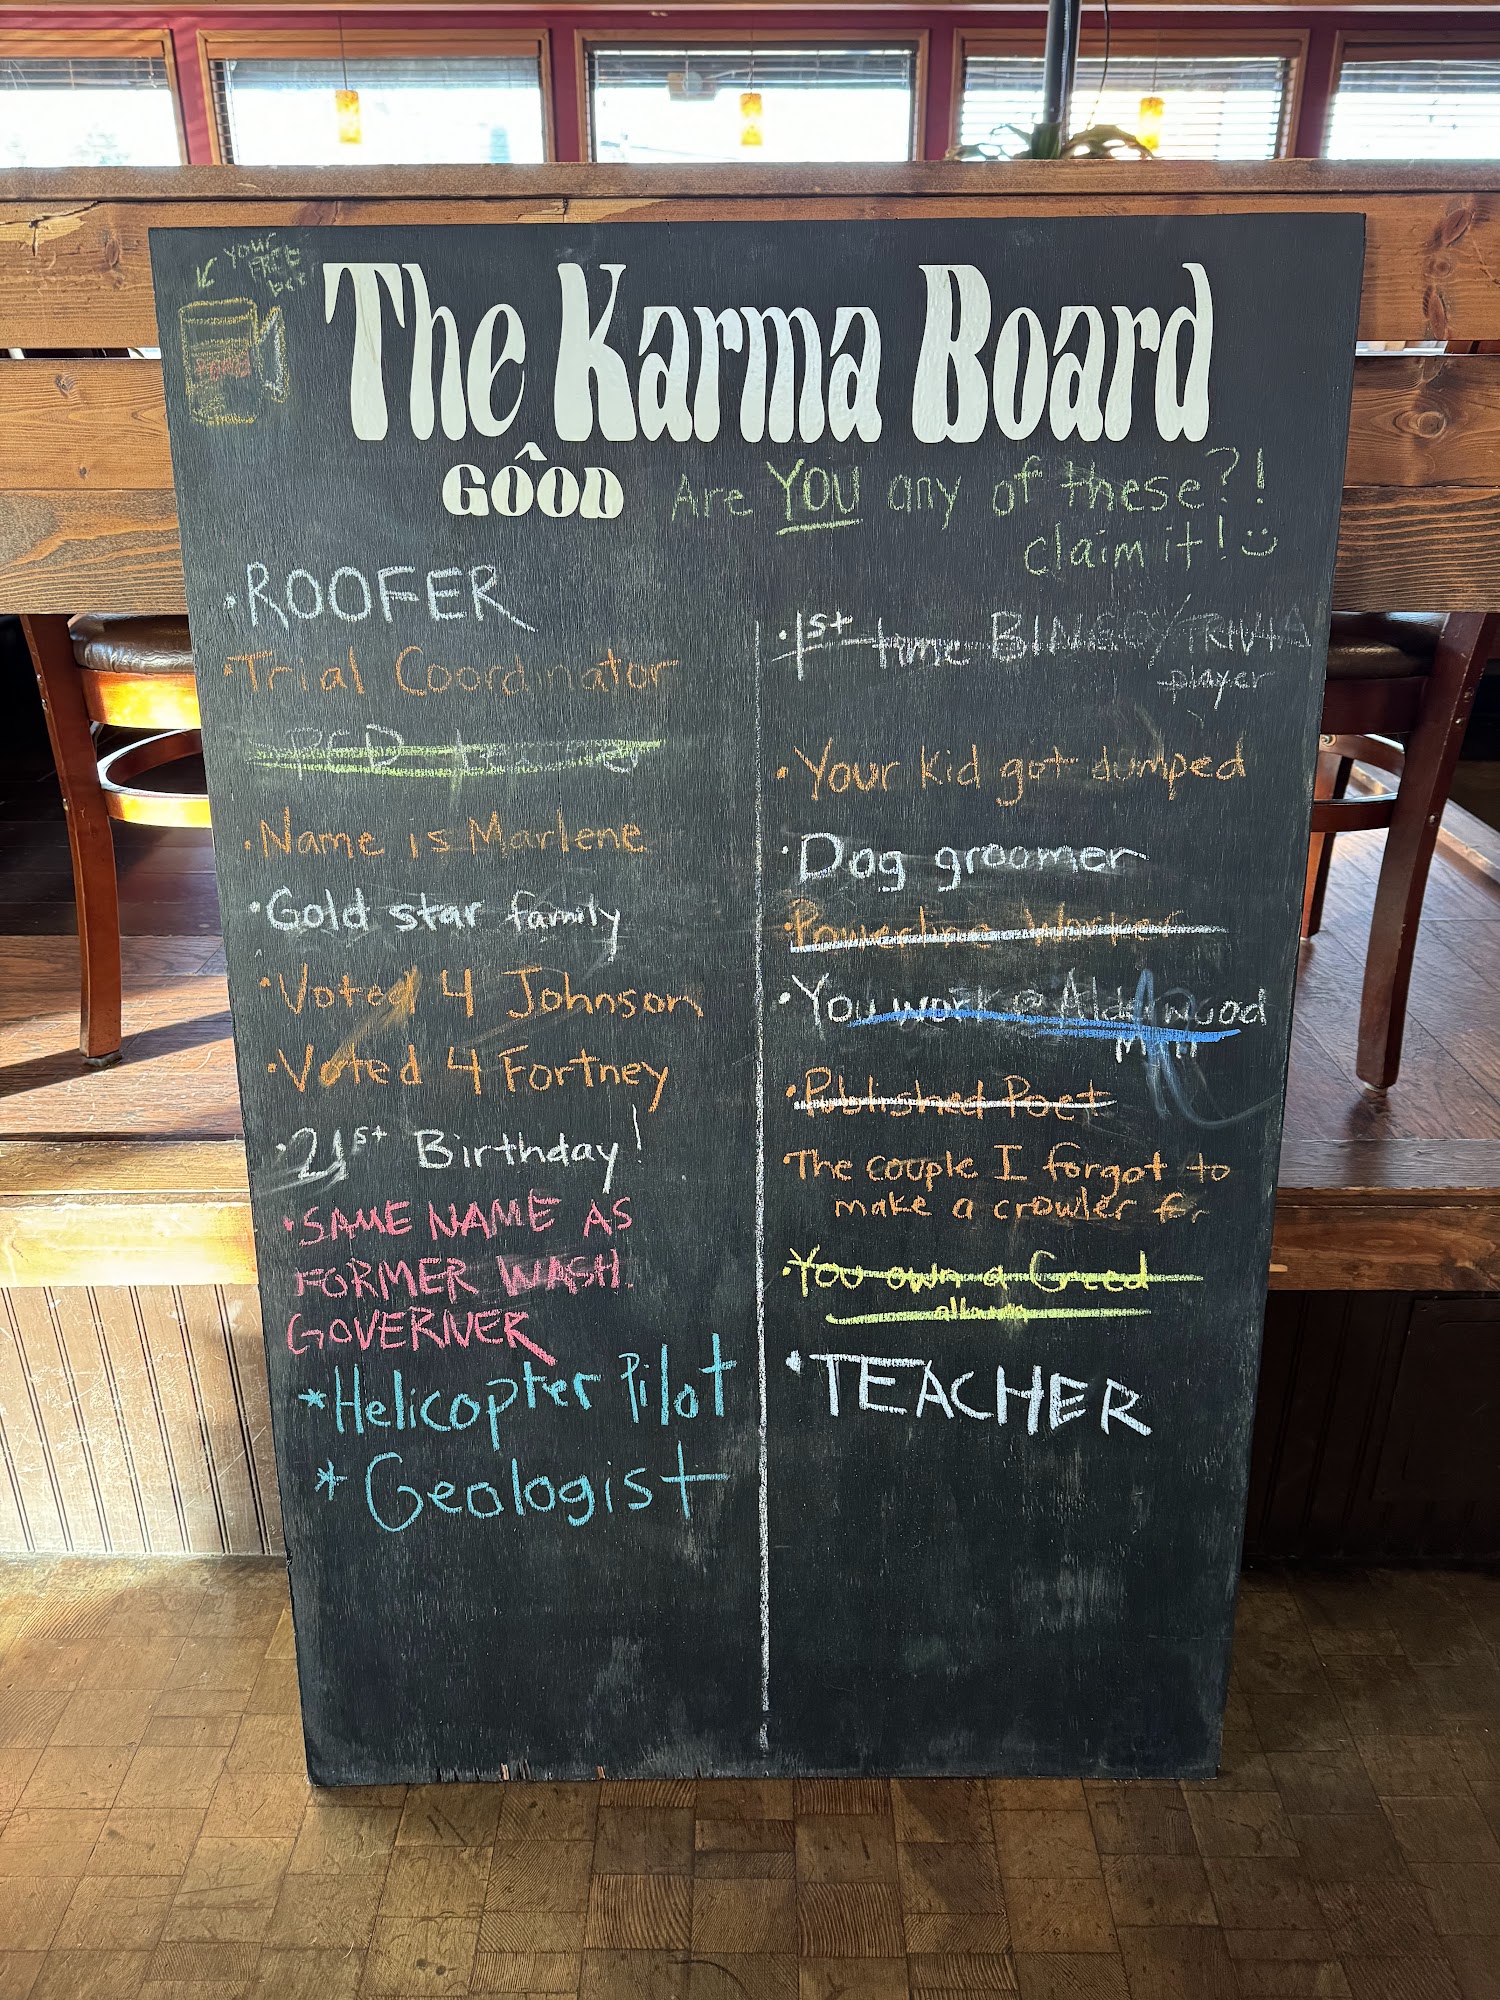 Your
FREE
The Karma Board
GOOD
Are YOU any of these?!
claim it!
• ROOFER
• Trial Coordinator
• Name is Marlene
• Gold star family
• Voted 4 Johnson
• Voted 4 Fortney
• 21st Birthday!
• SAME NAME AS
FORMER WASH.
GOVERNER
* Helicopter Pilot
* Geologist
• 1st time BINGO/TRIVIA
player
• Your kid got dumped
• Dog groomer
• Powerline Worker
• You work @ Alderwood
Mall
• Published Poet
• The couple I forgot to
make a crowler for
• You own a Creed
album
• TEACHER